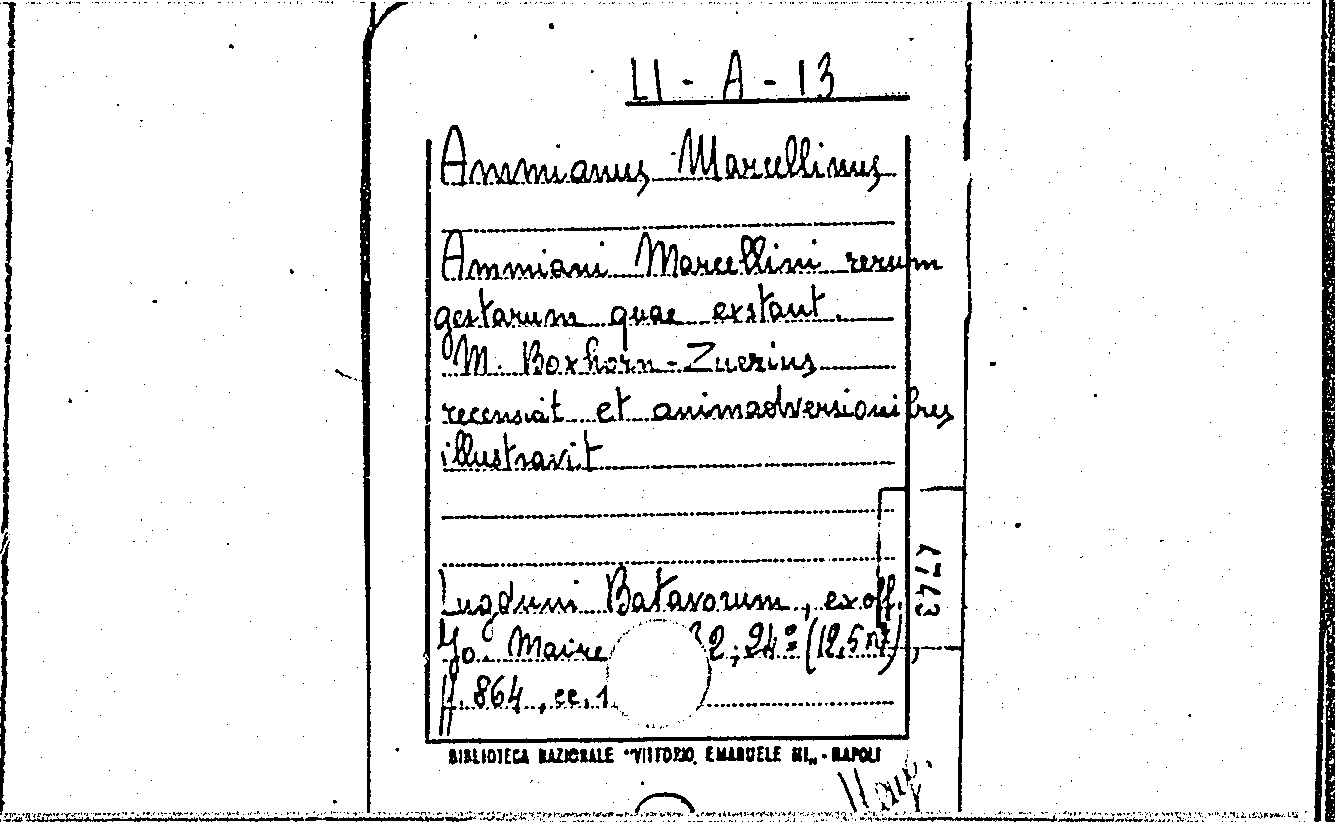 LI - A - 13
Ammianus Marcellinus
Ammiani Marcellini rerum
gestarum quae exstant.
M. Boxhorn - Zuerius
recensuit et animadversionibus
illustravit
Lugduni Batavorum, ex off.
Jo. Maire 32; 24º (12,5
ff. 864, cc. 1
BIBLIOTECA NAZIONALE "VITTORIO EMANUELE III" - NAPOLI